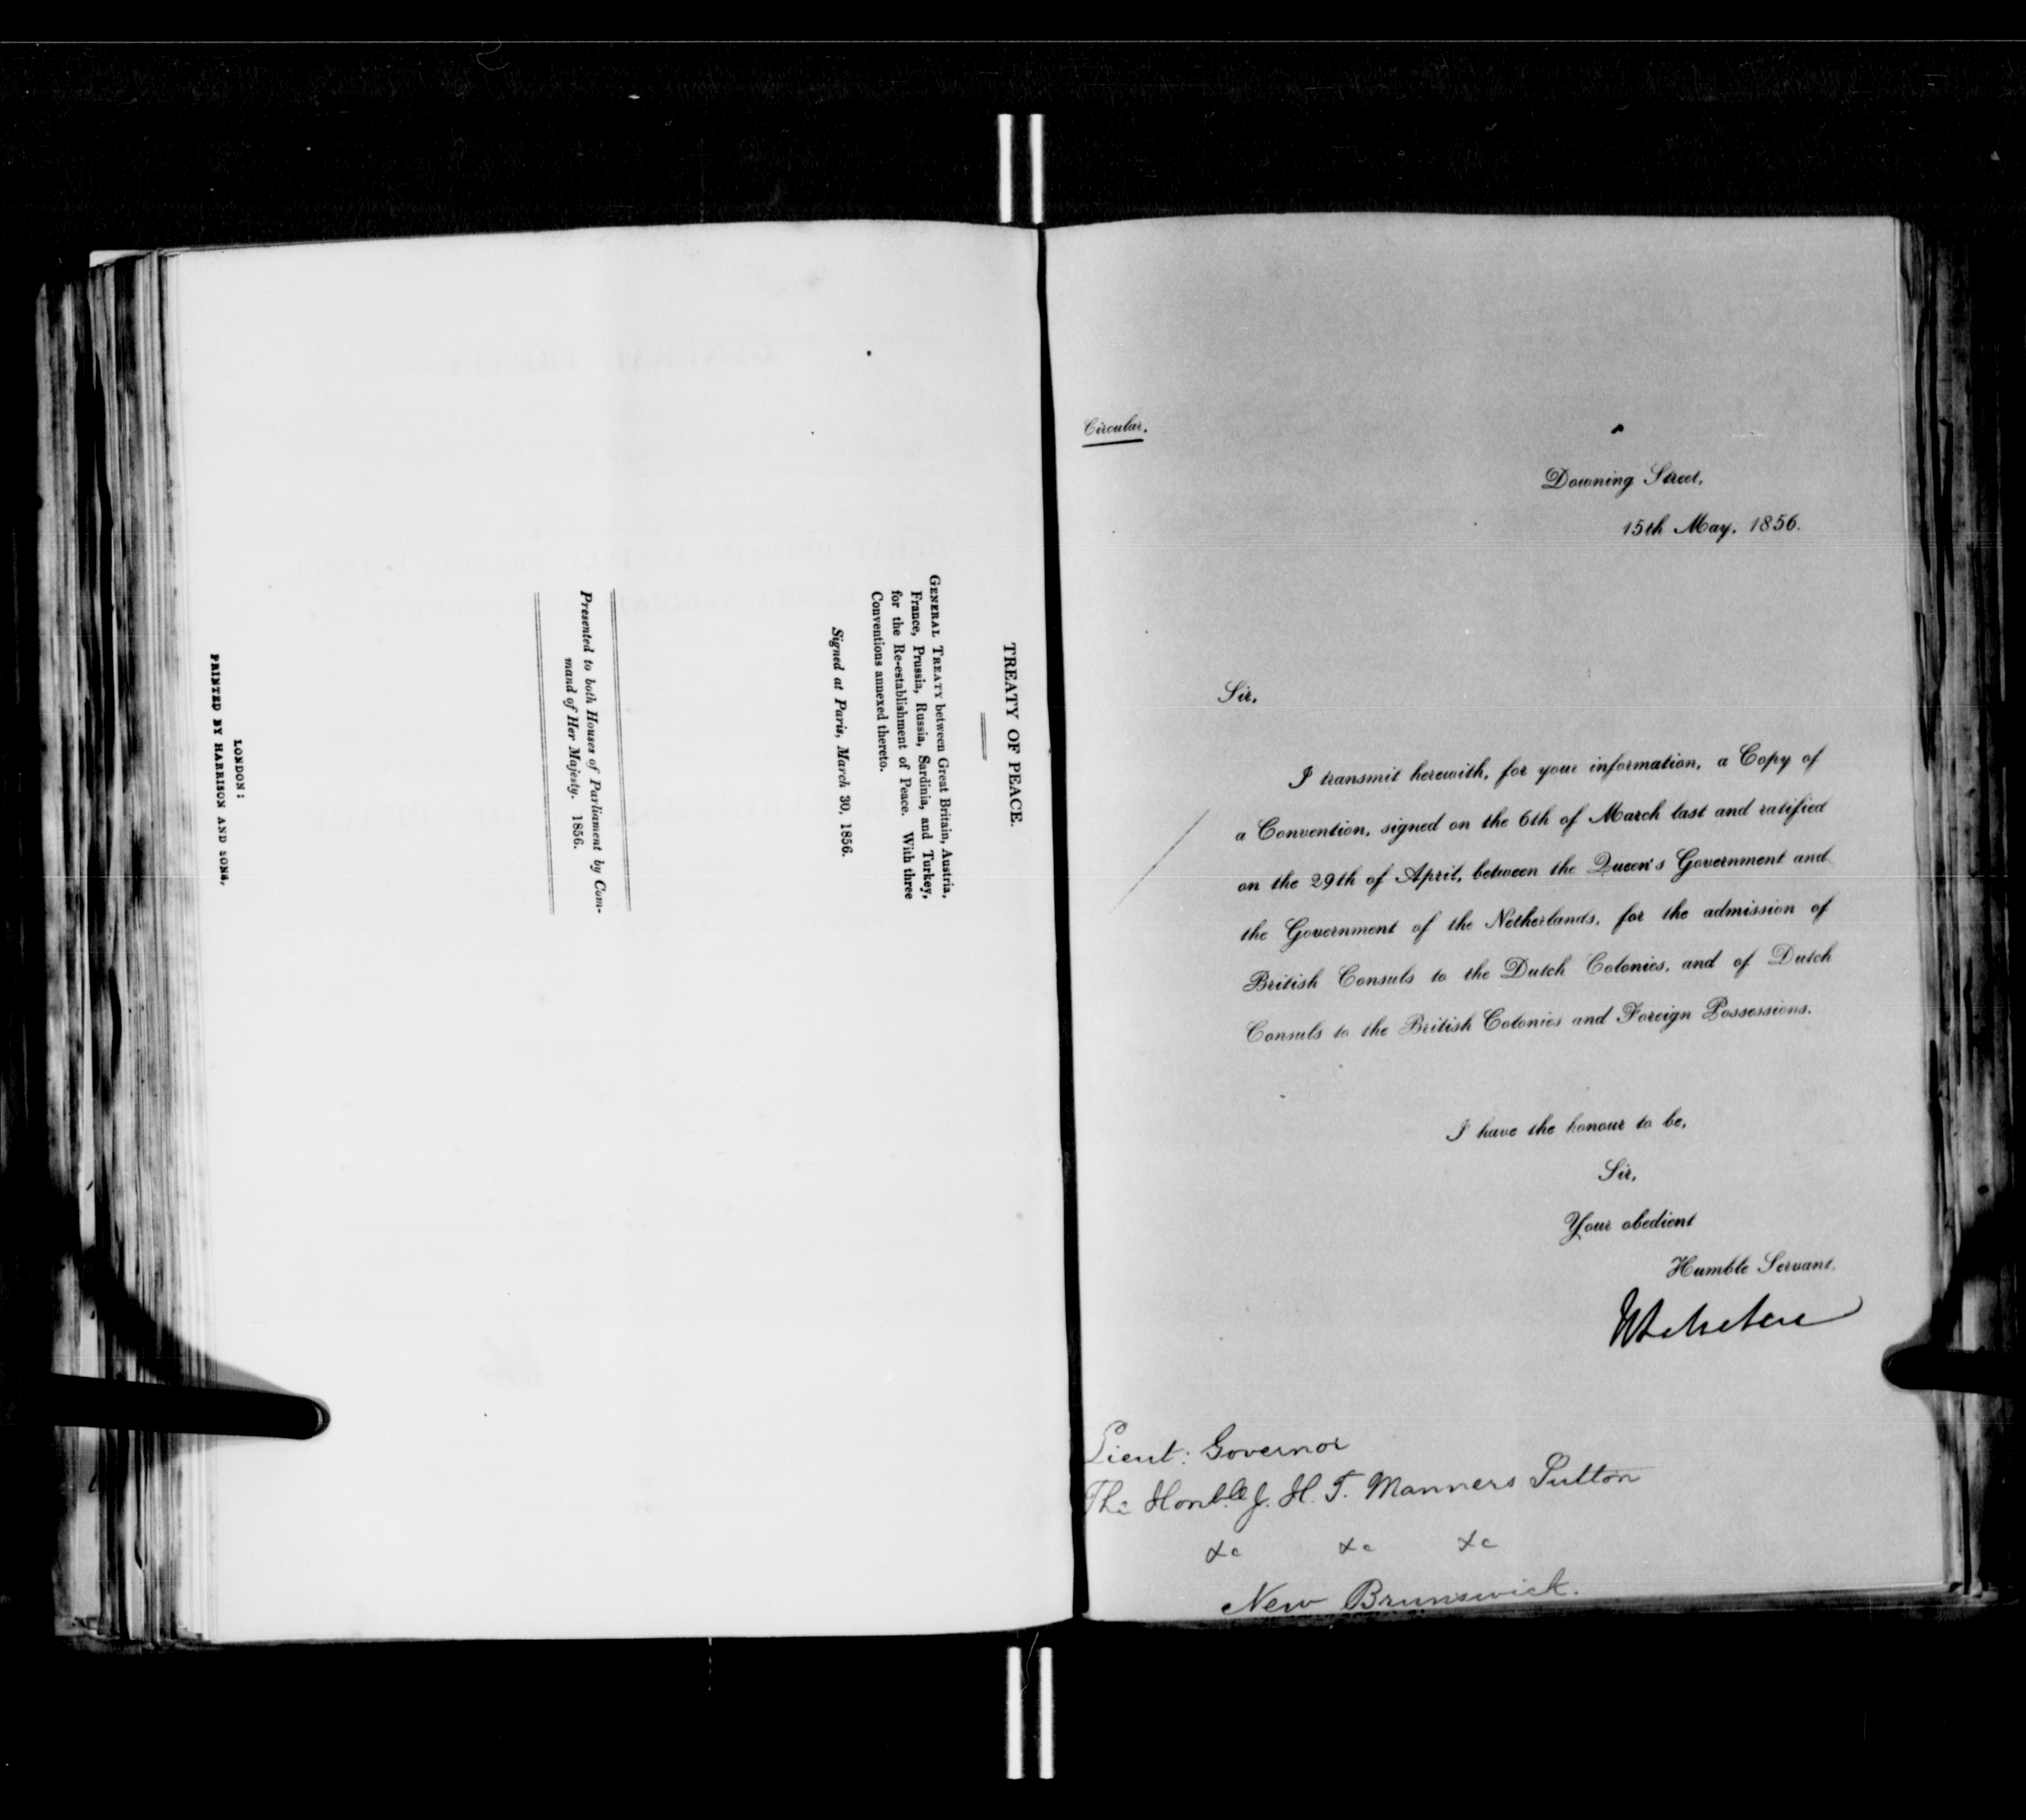 TREATY OF PEACE.
GENERAL TREATY between Great Britain, Austria,
France, Prussia, Russia, Sardinia, and Turkey,
for the Re-establishment of Peace. With three
Conventions annexed thereto.
Signed at Paris, March 30, 1856.
Presented to both Houses of Parliament by Com-
mand of Her Majesty. 1856.
LONDON:
PRINTED BY HARRISON AND SONS.
Circular.
Downing Street,
15th May, 1856.
Sir,
I transmit herewith, for your information, a Copy of
a Convention, signed on the 6th of March last and ratified
on the 29th of April, between the Queen's Government and
the Government of the Netherlands, for the admission of
British Consuls to the Dutch Colonies, and of Dutch
Consuls to the British Colonies and Foreign Possessions.
I have the honour to be,
Sir,
Your obedient
Humble Servant,
Lieut: Governor
The Honble J. H. T. Manners Sutton
&c &c &c
New Brunswick.